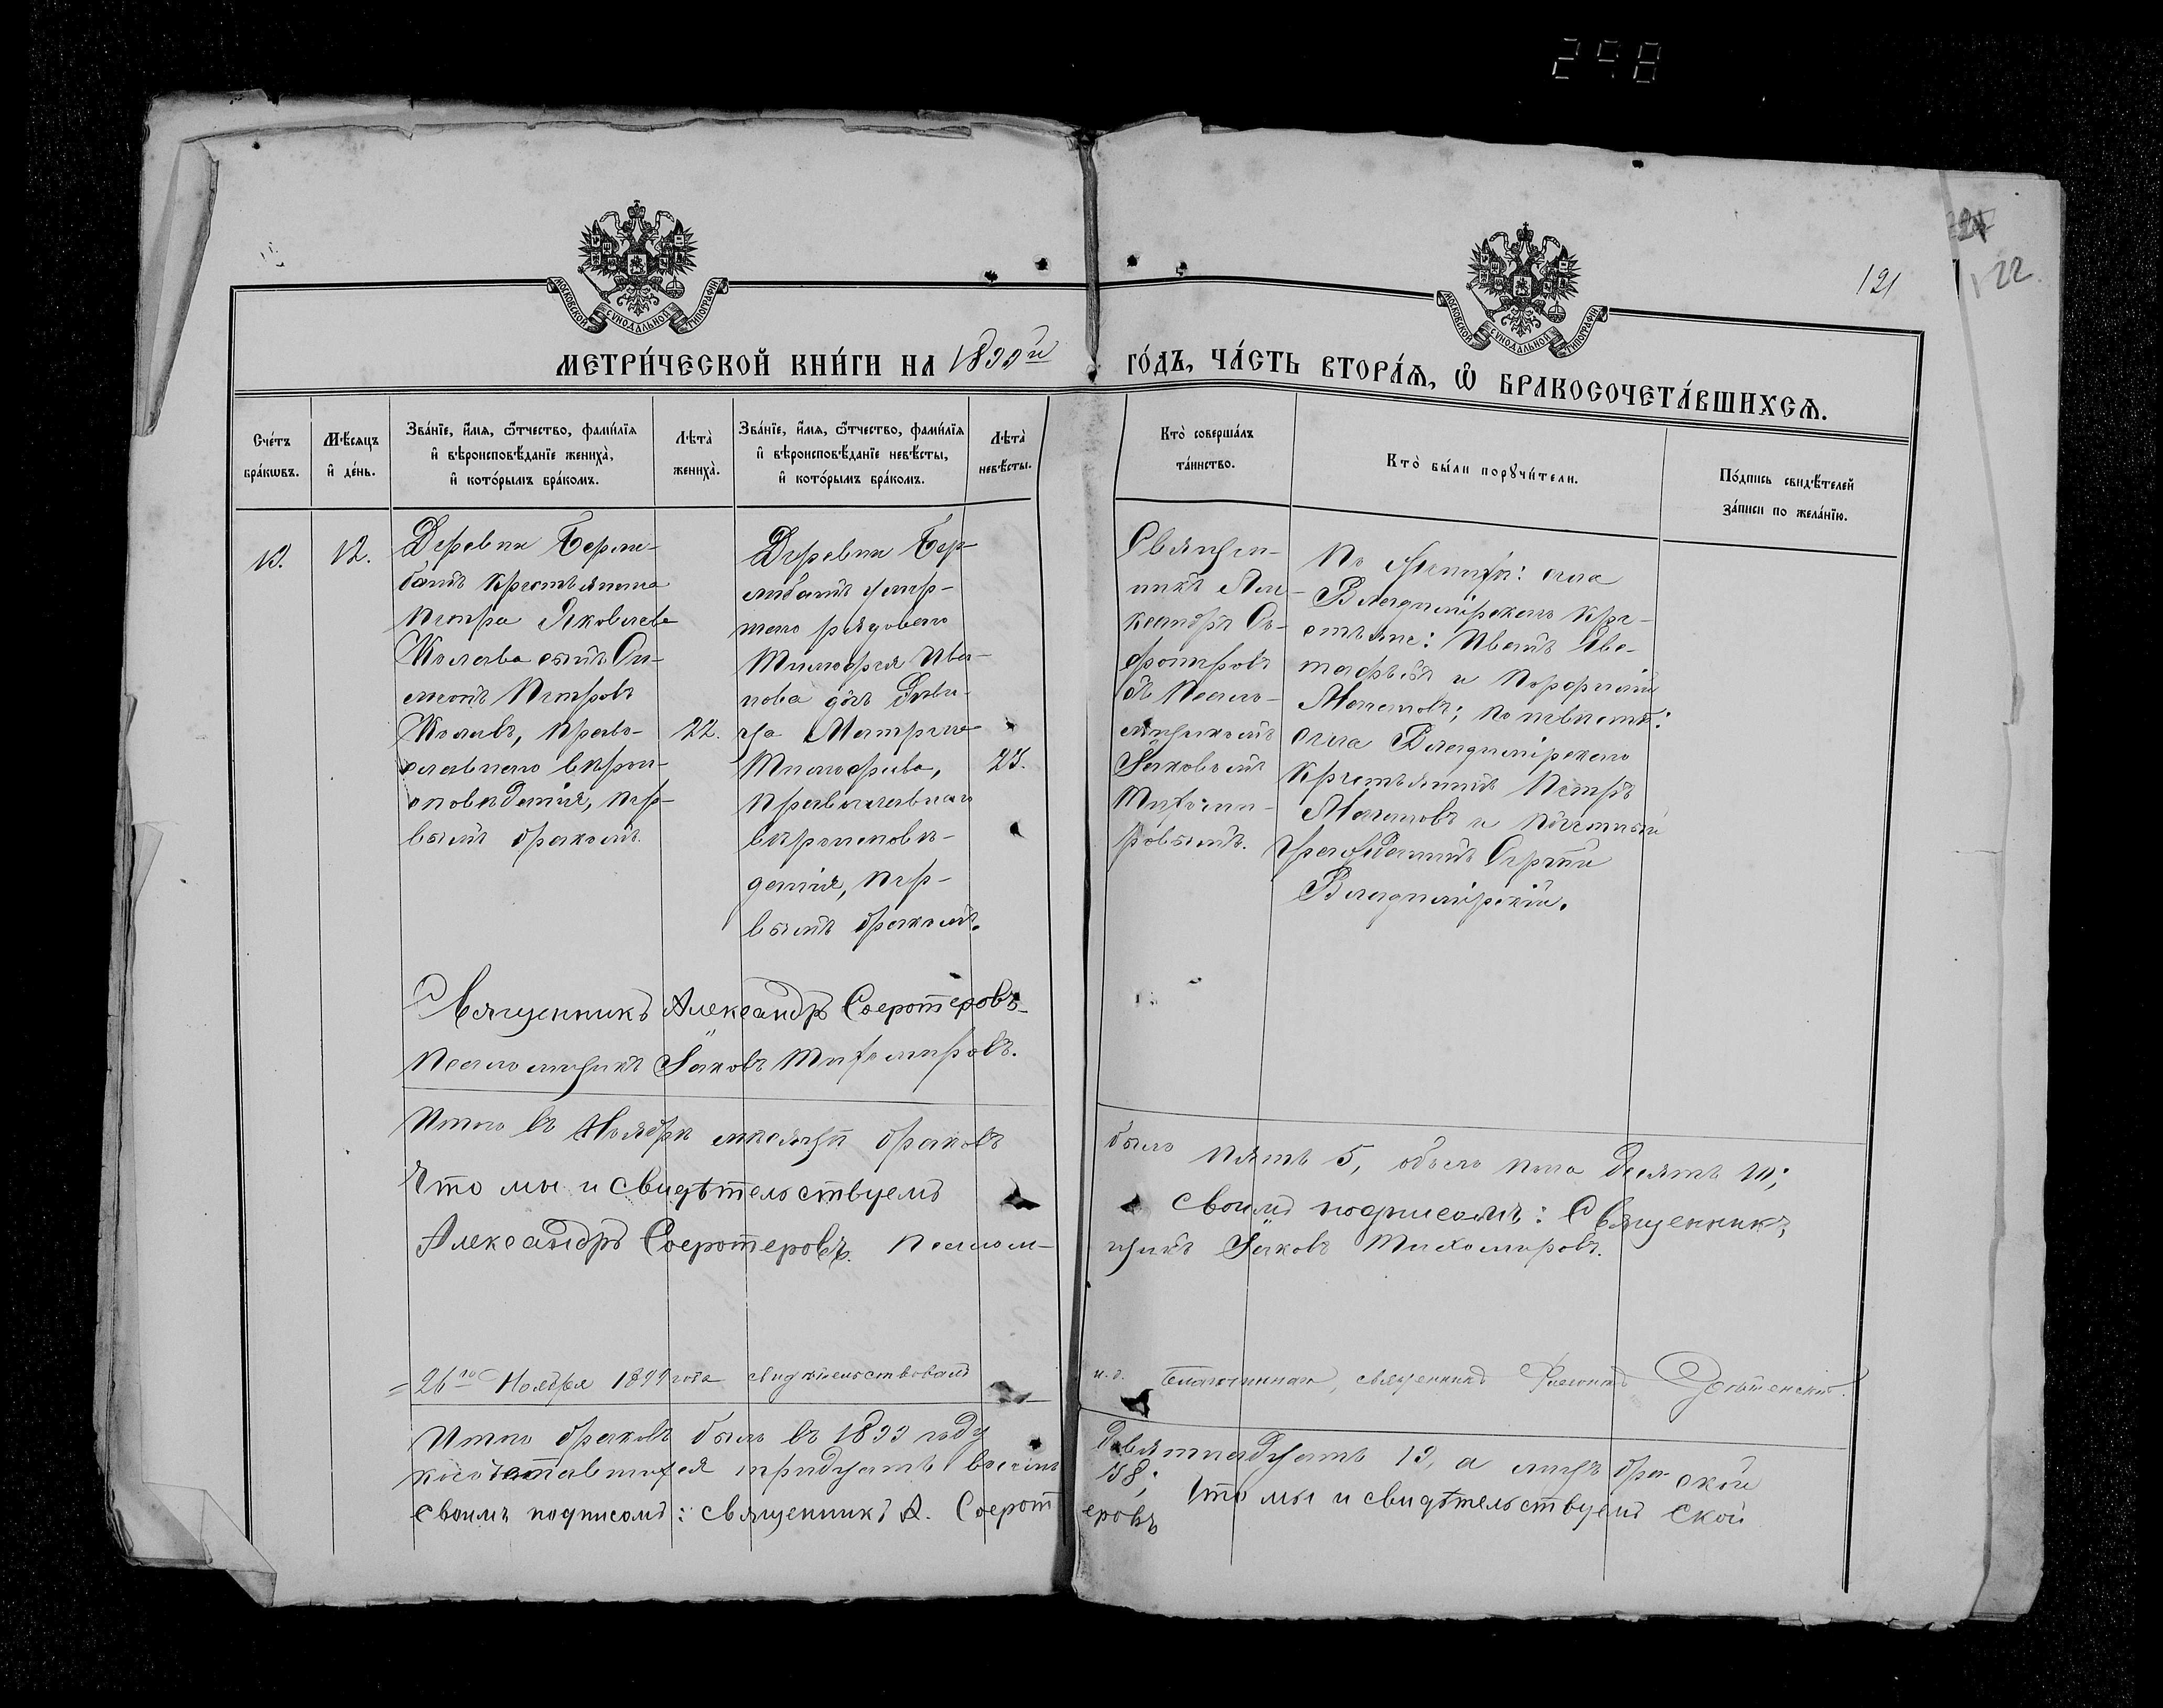 298
121
122.
МОСКОВСКОЙ СѴНОДАЛЬНОЙ ТИПОГРАФІИ
МОСКОВСКОЙ СѴНОДАЛЬНОЙ ТИПОГРАФІИ
МЕТРИ́ЧЕСКОЙ КНИ́ГИ НА 1899й ГО́ДЪ, ЧА́СТЬ ВТОРА́Ѧ, Ѽ БРАКОСОЧЕТА́ВШИХСѦ.
Сче́тъ бра́кѡвъ.
Мѣ́сяцъ и де́нь.
Зва́нїе, и́мя, ѿтчество, фами́лїя
и вѣроисповѣ́данїе жениха̀,
и кото́рымъ бра́комъ.
Лѣта̀ жениха̀.
Зва́нїе, и́мя, ѿтчество, фами́лїя
и вѣроисповѣ́данїе невѣ́сты,
и кото́рымъ бра́комъ.
Лѣта̀ невѣ́сты.
Кто̀ соверша́лъ
та́инство.
Кто̀ бы́ли порꙋчи́тели.
По́дпись свидѣ́телей
за́писи по жела́нїю.
19.
12.
Деревни
банъ крестьянина
Петра Яковлева
сынъ Си-
меонъ Петровъ
право-
славнаго вѣрои-
сповѣданія, пер-
вымъ бракомъ.
22.
Деревни
умер-
шаго рядоваго
Тимофея Ива-
нова дочь дѣви-
ца Матрона
Тимофеева,
православнаго
вѣроисповѣ-
данія, пер-
вымъ бракомъ.
23.
Священ-
никъ Але-
ксандръ Со-
фотеровъ
съ псало-
мщикомъ
Іаковомъ
Тихоми-
ровымъ.
По женихѣ: села
Владимірскаго кре-
стьяне: Иванъ Ев-
стафьевъ и Порфирій
по невѣстѣ:
села Владимірскаго
крестьянинъ Петръ
и почетный
гражданинъ Сергѣй
Владимірскій.
Священникъ Александръ Соеротеровъ
Псаломщикъ Іаковъ Тихомировъ.
Итого въ Ноябрѣ мѣсяцѣ браковъ было пять 5, обоего пола десять 10;
Что мы и свидѣтельствуемъ своимъ подписомъ: Священникъ
Александръ Соеротеровъ. Псаломщикъ Іаковъ Тихомировъ.
26го Ноября 1899 года свидѣтельствовалъ и. д. Благочиннаго, священникъ
Итого браковъ было въ 1899 году девятнадцать 19, а лицъ бра-
косочетавшихся тридцать восемь 38;
Что мы и свидѣтельствуемъ
своимъ подписомъ: священникъ А. Соеротеровъ